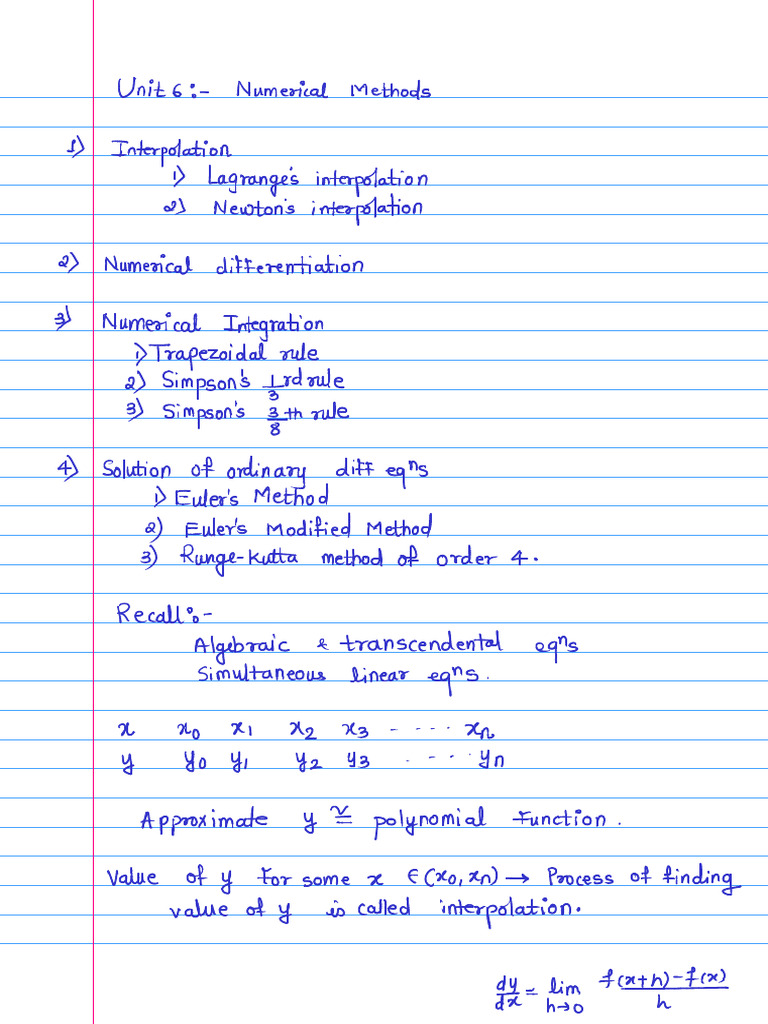 Unit 6:- Numerical Methods
1) Interpolation
1) Lagrange's interpolation
2) Newton's interpolation
2) Numerical differentiation
3) Numerical Integration
1) Trapezoidal rule
2) Simpson's 1/3 rd rule
3) Simpson's 3/8 th rule
4) Solution of ordinary diff eqⁿs
1) Euler's Method
2) Euler's Modified Method
3) Runge-Kutta method of order 4.
Recall:-
Algebraic & transcendental eqⁿs
Simultaneous linear eqⁿs.
x x₀ x₁ x₂ x₃ - ---- xₙ
y y₀ y₁ y₂ y₃ . ---- yₙ
Approximate y ≅ polynomial function.
Value of y for some x ∈ (x₀, xₙ) → Process of finding
value of y is called interpolation.
dy/dx = lim h→0 f(x+h)-f(x)/h